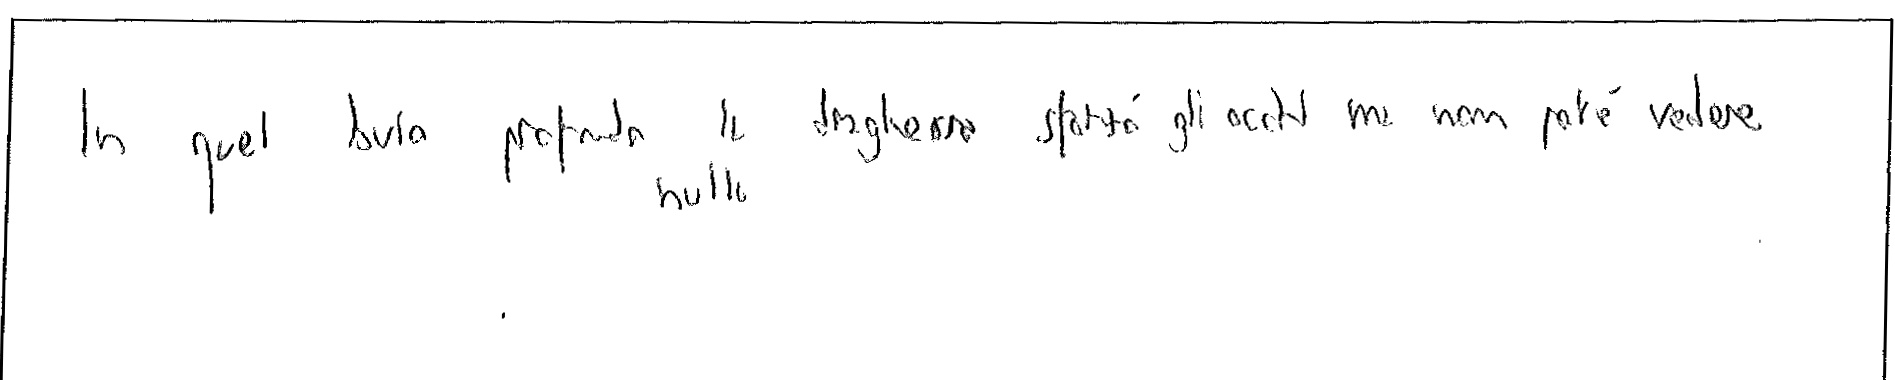 In quel buio profondo la draghessa sforzò gli occhi ma non poté vedere
nulla